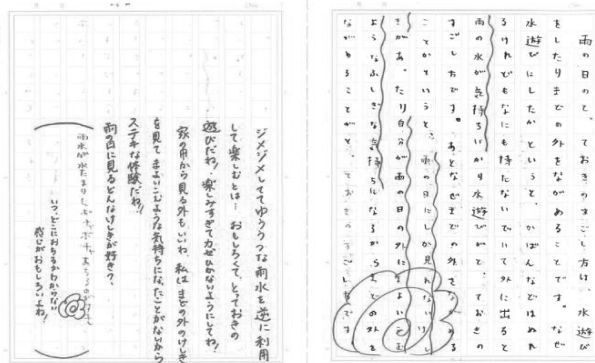 雨の日のとっておきのすごし方は、水遊び
をしたりまどの外をながめることです。なぜ
水遊びにしたかというと、かばんなどはぬれ
るけれどもなにも持たないでいて外に出ると
雨の水が気持ちいから水遊びがとっておきの
すごし方です。あとなぜまどの外をながめる
ことかというと、雨の日にしか見れないけし
きがあったり自分が雨の日の外にまよいこむ
ようなふしぎな気持ちになるからまどの外を
ながめることがとっておきのすごし方です。
ジメジメしててゆううつな雨水を逆に利用
して楽しむとは…おもしろくて、とっておきの
遊びだね!楽しみすぎてカゼひかないようにしてね!
家の中から見る外もいいね。私はまどの外のけしき
を見てまよいこむような気持ちになったことがないから
ステキな体験だね!
雨の日に見るどんなけしきが好き?
雨水が水たまりにポチャポチャおちるの
いつ、どこにおちるかわからない
感じがおもしろいよね!